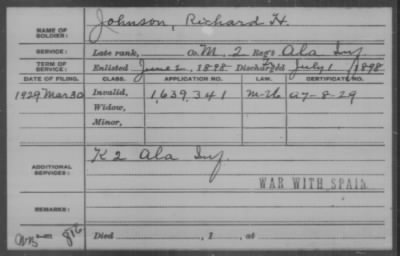 NAME OF SOLDIER: Johnson, Richard H.
SERVICE: Late rank, Co. M, 2 Reg't Ala Inf.
TERM OF SERVICE: Enlisted June 2, 1898 Discharged July 1, 1898
DATE OF FILING. CLASS. APPLICATION NO. LAW. CERTIFICATE NO.
1929 Mar 30 Invalid, 1,639,341 A7-8-29
Widow,
Minor,
ADDITIONAL SERVICES: K 2 Ala Inf.
WAR WITH SPAIN
REMARKS:
Died , 1 , at